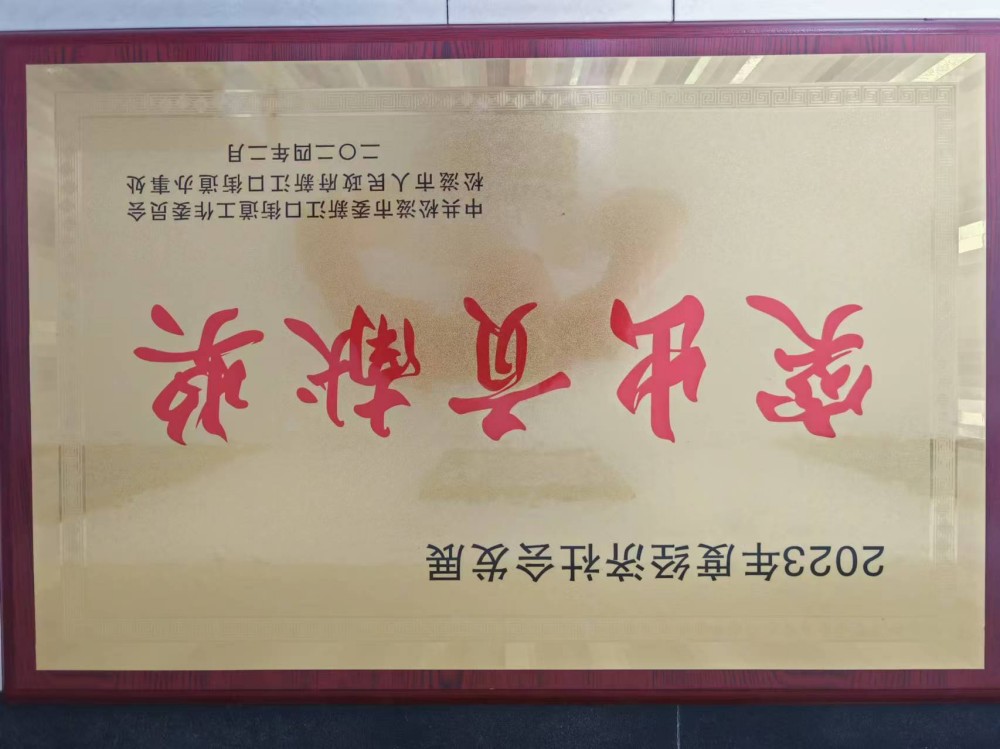 2023年度经济社会发展
突出贡献奖
中共松滋市委新江口街道工作委员会
松滋市人民政府新江口街道办事处
二〇二四年二月